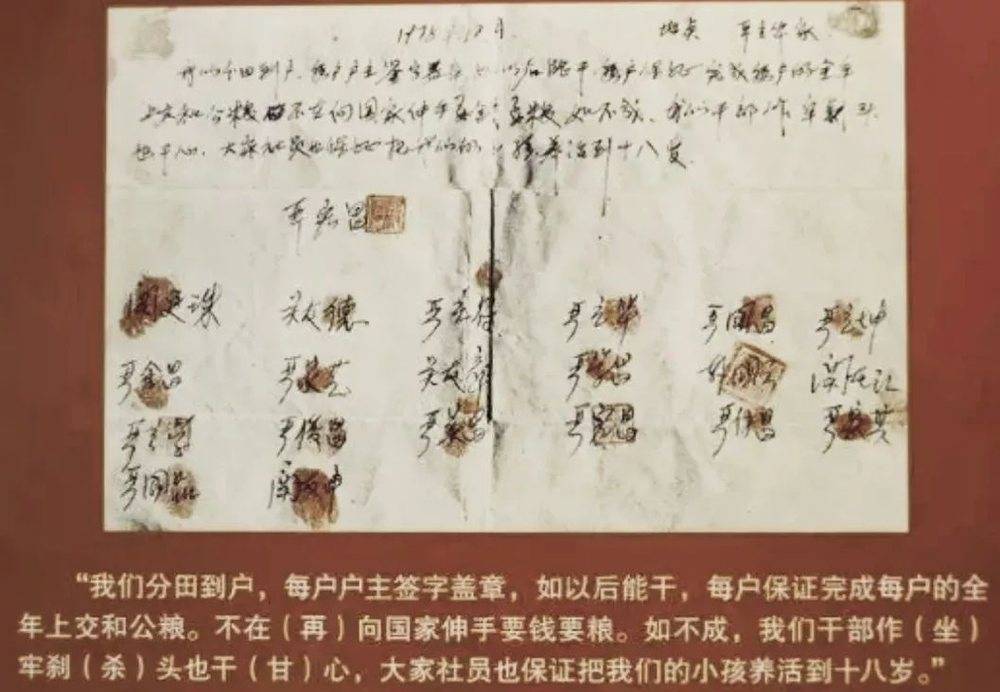 1978.12月 地点 严立华家
我们分田到户,每户户主签字盖章,如以后能干,每户保证完成每户的全年
上交和公粮 不在向国家伸手要钱要粮 如不成,我们干部作牢刹头
也干心,大家社员也保证把我们的小孩养活到十八岁。
严宏昌
关廷珠 关友德 严立符 严立华 严国昌 严立坤
严金昌 严家芝 关友章 严学昌 韩国云 关友江
严立学 严俊昌 严美昌 严宏昌 严付昌 严家其
严国品 关友申
“我们分田到户,每户户主签字盖章,如以后能干,每户保证完成每户的全
年上交和公粮。不在(再)向国家伸手要钱要粮。如不成,我们干部作(坐)
牢刹(杀)头也干(甘)心,大家社员也保证把我们的小孩养活到十八岁。”